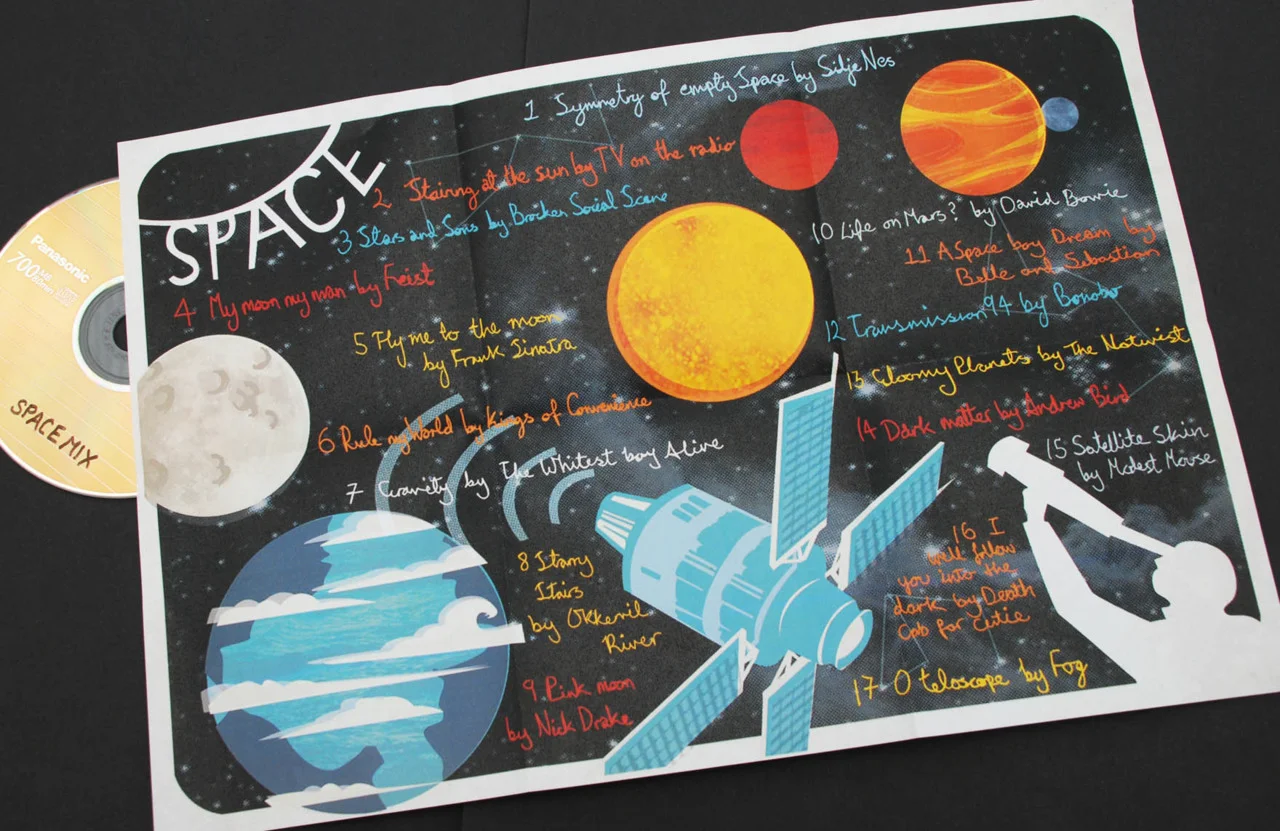 SPACE
1 Symmetry of empty Space by Silje Nes
2 Staring at the sun by TV on the radio
3 Stars and Sons by Broken Social Scene
4 My moon my man by Feist
5 Fly me to the moon
by Frank Sinatra
6 Rule my world by Kings of Convenience
7 Gravity by The Whitest boy Alive
8 Starry
Stairs
by Okkervil
River
9 Pink moon
by Nick Drake
10 Life on Mars? by David Bowie
11 A Space boy Dream by
Belle and Sebastian
12 Transmission 94 by Bonobo
13 Gloomy Planets by The Notwist
14 Dark matter by Andrew Bird
15 Satellite Skin
by Modest Mouse
16 I
will follow
you into the
dark by Death
Cab for Cutie
17 O teloscope by Fog
Panasonic
700 MB
80min
SPACE MIX